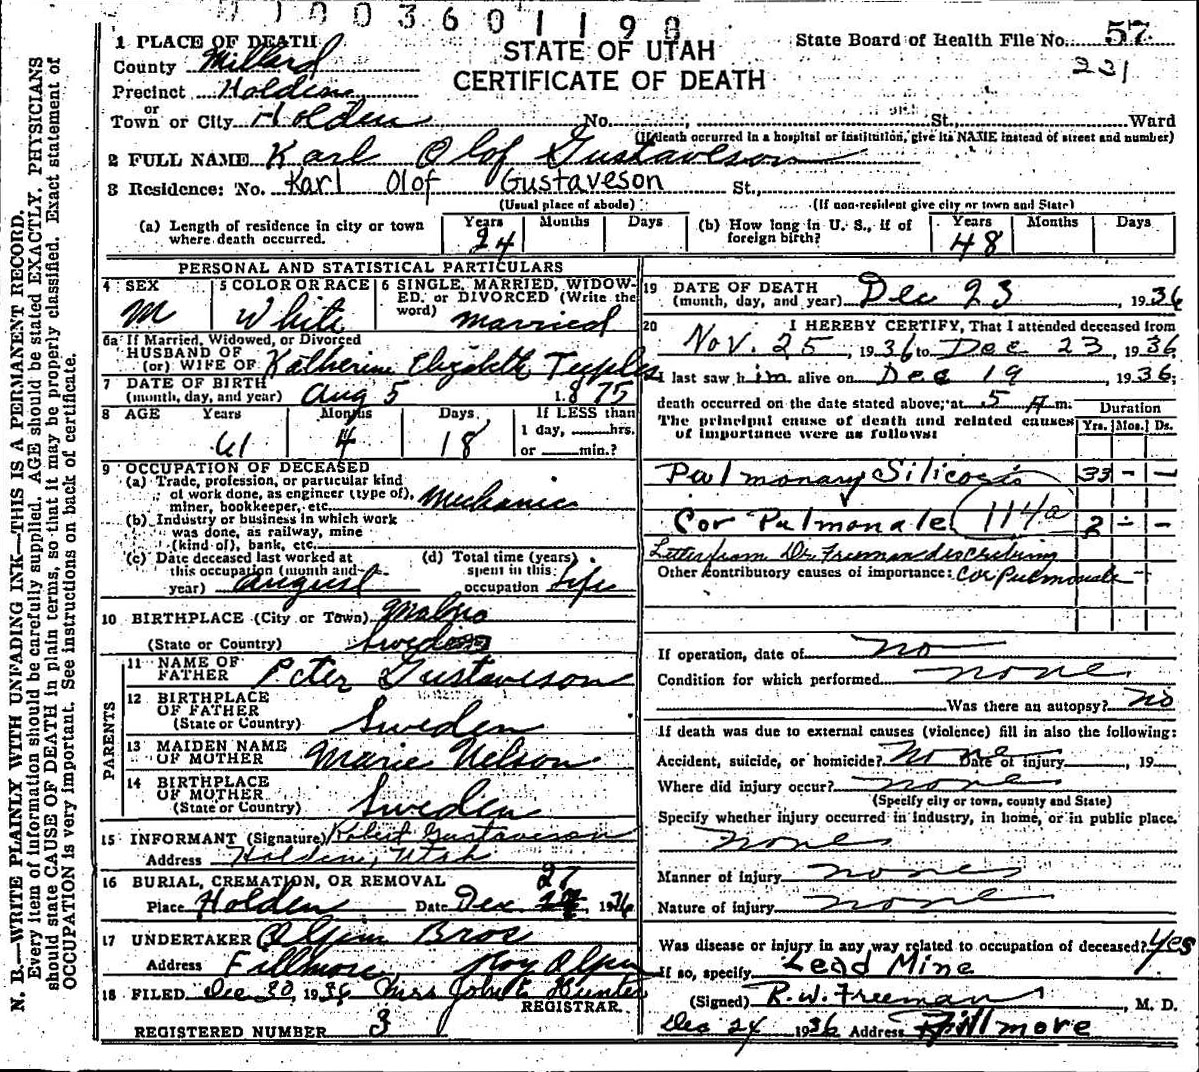 1003601190
1 PLACE OF DEATH
STATE OF UTAH
CERTIFICATE OF DEATH
State Board of Health File No. 57
221
County Millard
Precinct Holden
or
Town or City Holden No. St., Ward
(If death occurred in a hospital or institution, give its NAME instead of street and number)
2 FULL NAME Karl Olof Gustaveson
3 Residence: No. Karl Olof Gustaveson St.,
(Usual place of abode) (If non-resident give city or town and State)
(a) Length of residence in city or town where death occurred. Years 24 Months Days
(b) How long in U. S., if of foreign birth? Years 48 Months Days
PERSONAL AND STATISTICAL PARTICULARS
4 SEX M
5 COLOR OR RACE White
6 SINGLE, MARRIED, WIDOWED, or DIVORCED (Write the word) married
6a If Married, Widowed, or Divorced
HUSBAND OF
(or) WIFE OF Katherine Elizabeth Teeples
7 DATE OF BIRTH
(month, day, and year) Aug 5 1875
8 AGE Years 61 Months 4 Days 18 If LESS than
1 day, hrs.
or min.?
9 OCCUPATION OF DECEASED
(a) Trade, profession, or particular kind
of work done, as engineer (type of),
miner, bookkeeper, etc. Mechanic
(b) Industry or business in which work
was done, as railway, mine
(kind of), bank, etc.
(c) Date deceased last worked at
this occupation (month and
year) August
(d) Total time (years)
spent in this
occupation Life
10 BIRTHPLACE (City or Town) Malmo
(State or Country) Sweden
PARENTS
11 NAME OF
FATHER Peter Gustaveson
12 BIRTHPLACE
OF FATHER
(State or Country) Sweden
13 MAIDEN NAME
OF MOTHER Marie Nelson
14 BIRTHPLACE
OF MOTHER
(State or Country) Sweden
15 INFORMANT (Signature) Robert Gustaveson
Address Holden, Utah
16 BURIAL, CREMATION, OR REMOVAL
Place Holden Date Dec 27, 1936
17 UNDERTAKER Olpin Bros
Address Fillmore, Roy Olpin
18 FILED Dec 30, 1936 Miss John E Hunter
REGISTRAR
REGISTERED NUMBER 3
19 DATE OF DEATH
(month, day, and year) Dec 23, 1936
20 I HEREBY CERTIFY, That I attended deceased from
Nov. 25, 1936 to Dec 23, 1936
I last saw him alive on Dec 19 1936;
death occurred on the date stated above; at 5 A m.
The principal cause of death and related causes
of importance were as follows:
Duration
Yrs. Mos. Ds.
Pulmonary Silicosis 33 - -
Cor Pulmonale 114a 2 - -
Letter from Dr. Freeman describing
Other contributory causes of importance: Cor Pulmonale
If operation, date of no
Condition for which performed none
Was there an autopsy? No
If death was due to external causes (violence) fill in also the following:
Accident, suicide, or homicide? None Date of injury , 19
Where did injury occur? none
(Specify city or town, county and State)
Specify whether injury occurred in industry, in home, or in public place.
none
Manner of injury none
Nature of injury none
Was disease or injury in any way related to occupation of deceased? Yes
If so, specify Lead Mine
(Signed) R.W. Freeman, M. D.
Dec 24 1936 Address Fillmore
N. B.—WRITE PLAINLY WITH UNFADING INK—THIS IS A PERMANENT RECORD.
Every item of information should be carefully supplied. AGE should be stated EXACTLY. PHYSICIANS
should state CAUSE OF DEATH in plain terms, so that it may be properly classified. Exact statement of
OCCUPATION is very important. See instructions on back of certificate.